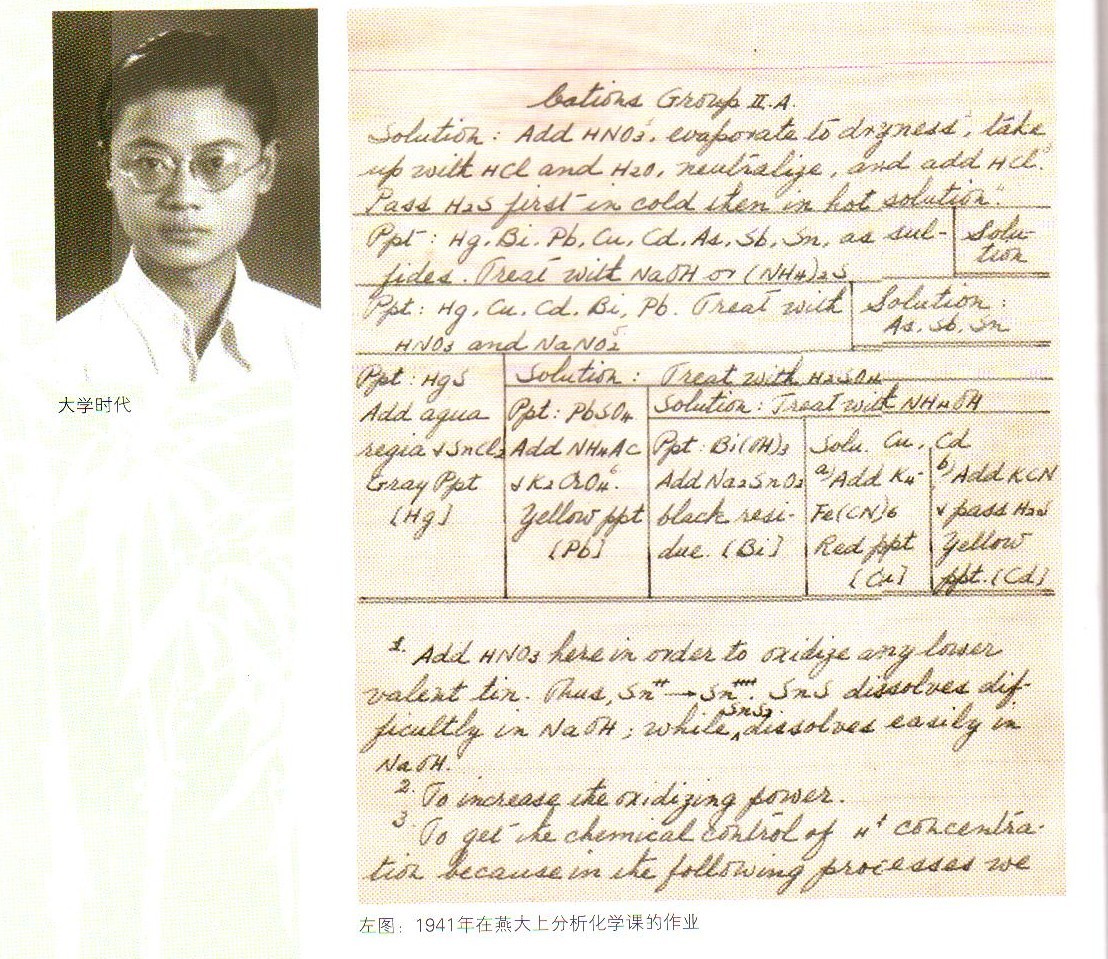 Cations Group II.A.
Solution: Add HNO3¹, evaporate to dryness², take
up with HCl and H2O, neutralize, and add HCl³.
Pass H2S first in cold then in hot solution⁴.
Ppt: Hg, Bi, Pb, Cu, Cd, As, Sb, Sn, as sul-
fides. Treat with NaOH or (NH4)2S
Solu-
tion
Ppt: Hg, Cu, Cd, Bi, Pb. Treat with
HNO3 and NaNO2⁵
Solution:
As, Sb, Sn
Ppt: HgS
Add aqua
regia + SnCl2
Gray Ppt
[Hg]
Solution: Treat with H2SO4
Ppt: PbSO4
Add NH4Ac
+ K2CrO4⁶.
Yellow ppt
[Pb]
Solution: Treat with NH4OH
Ppt: Bi(OH)3
Add Na2SnO2
black resi-
due. [Bi]
Solu. Cu, Cd
a) Add K4
Fe(CN)6
Red ppt
[Cu]
b) Add KCN
+ pass H2S
Yellow
ppt. [Cd]
1. Add HNO3 here in order to oxidize any lower
valent tin. Thus, Sn⁺⁺ → Sn⁺⁺⁺⁺. SnS dissolves dif-
ficultly in NaOH; while SnS2 dissolves easily in
NaOH.
2. To increase the oxidizing power.
3. To get the chemical control of H⁺ concentra-
tion because in the following processes we
大学时代
左图：1941年在燕大上分析化学课的作业